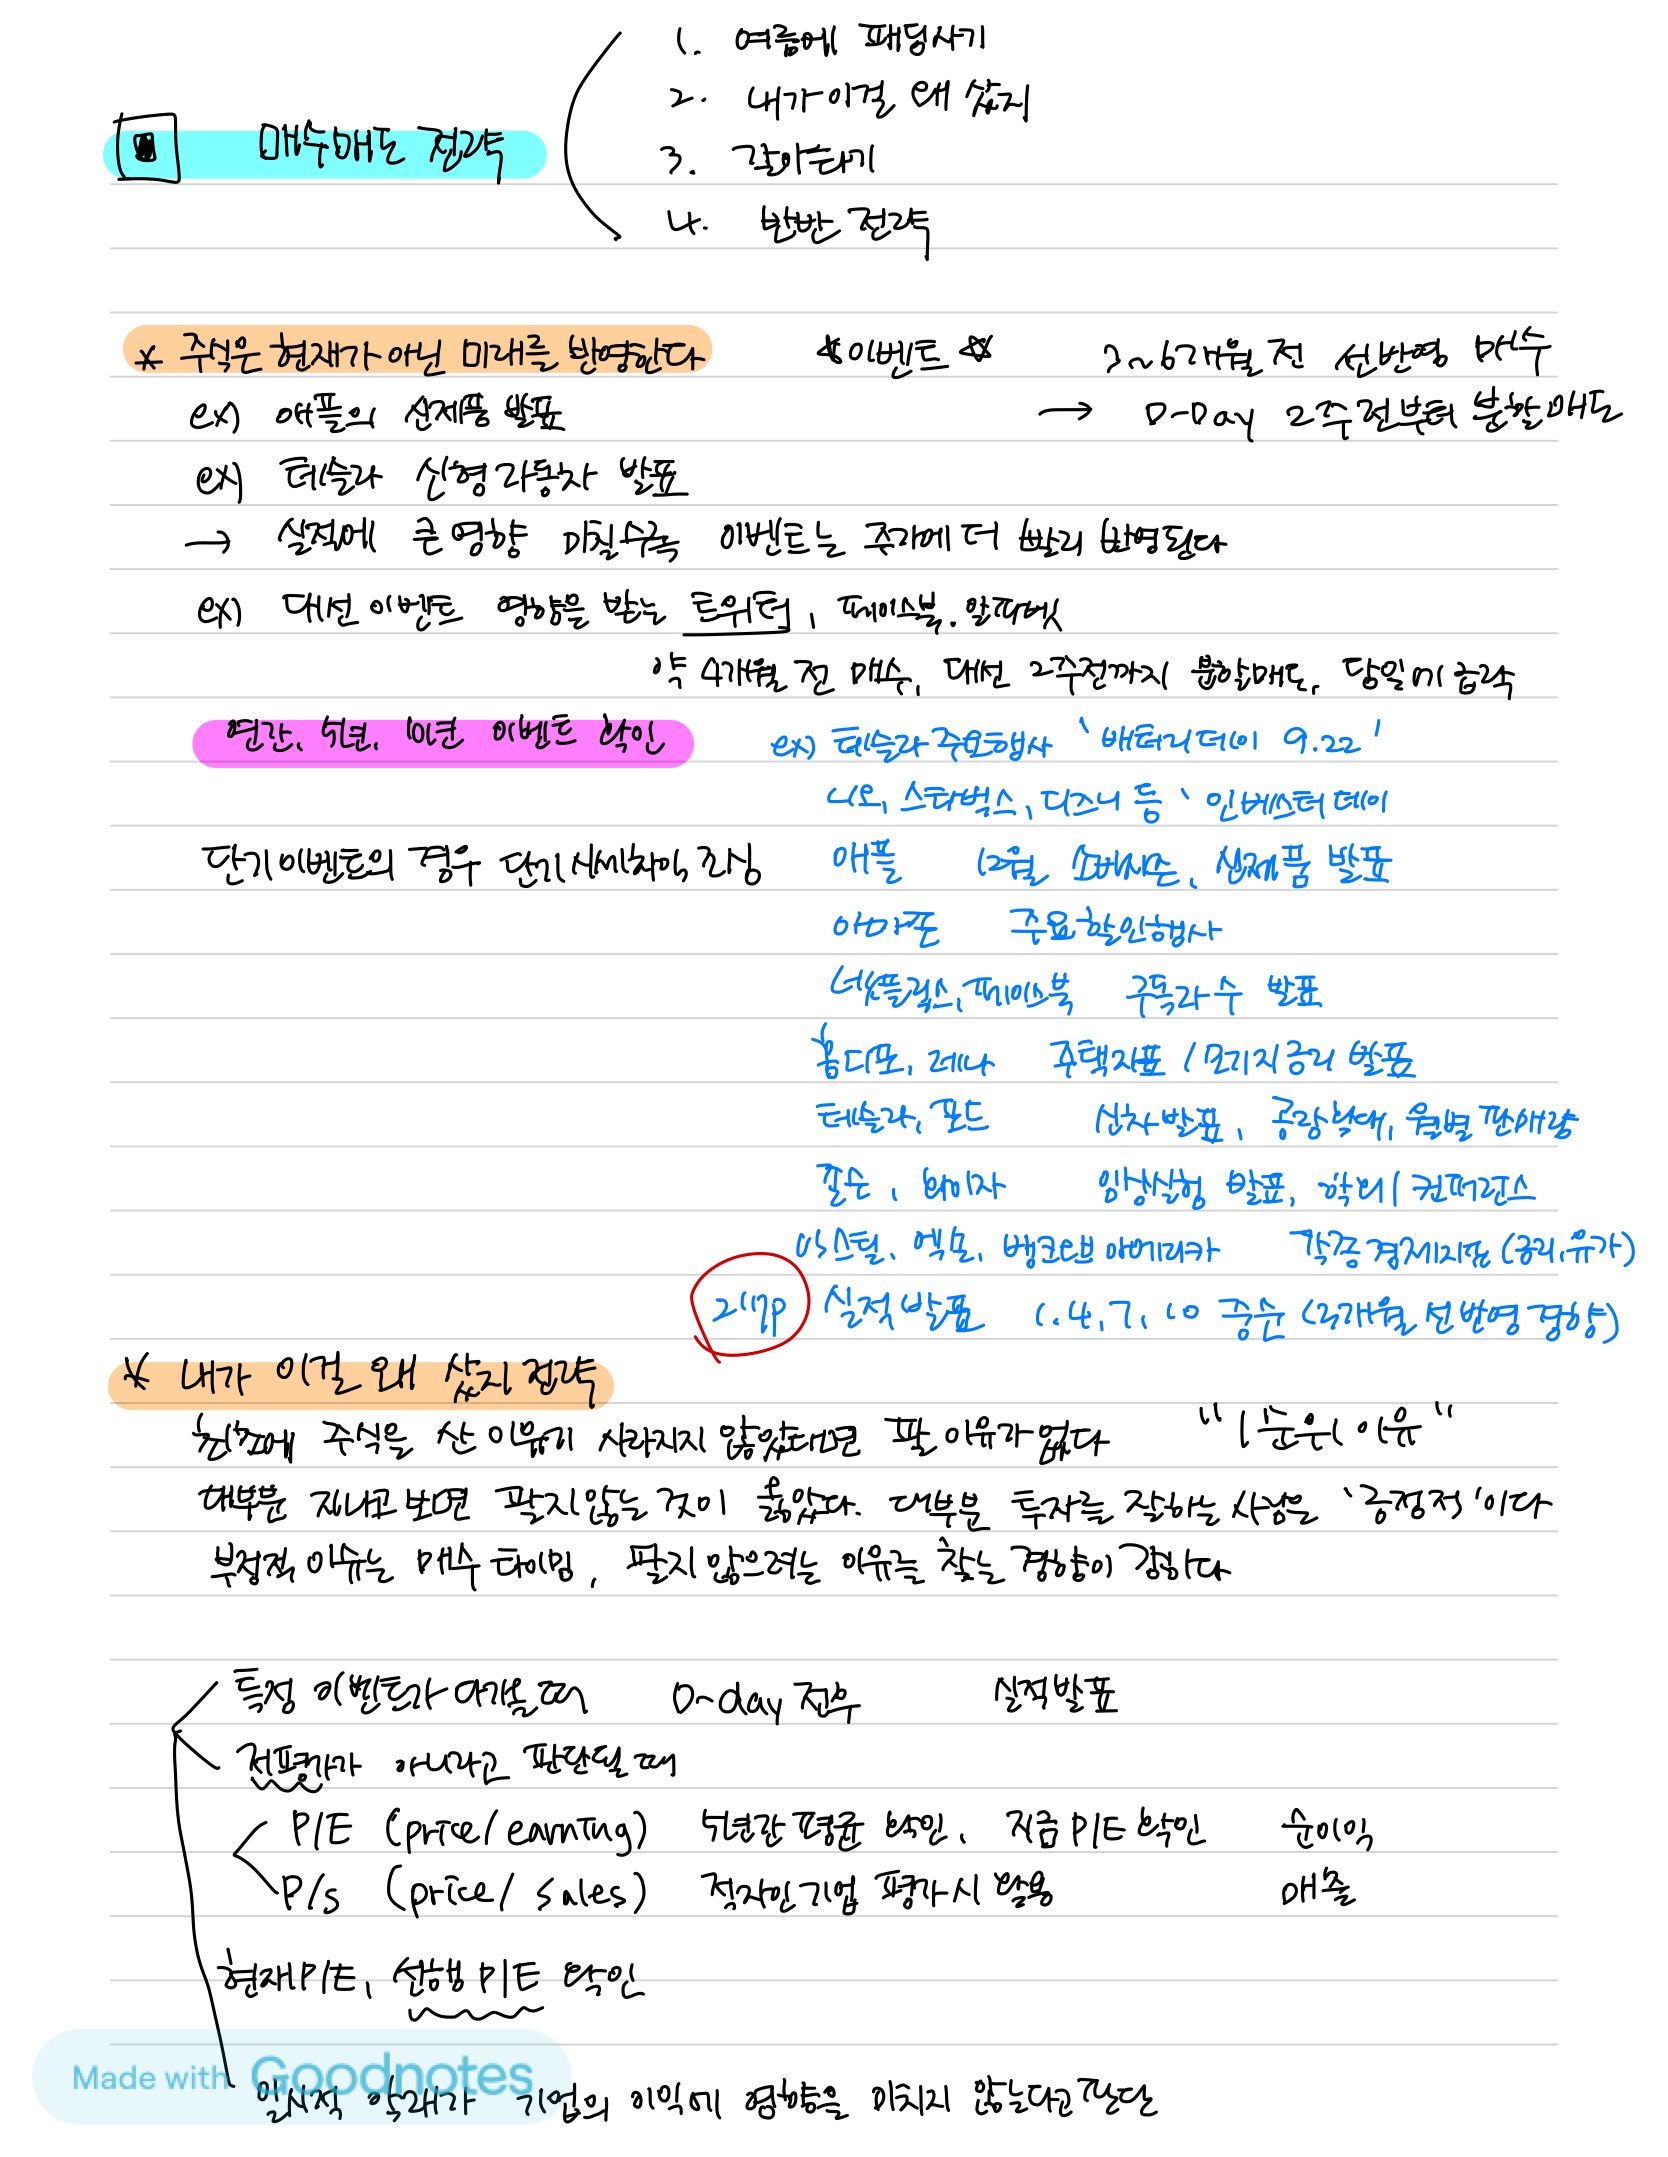 1. 여름에 패딩사기
2. 내가 이걸 왜 샀지
매수매도 전략
3. 갈아타기
4. 반반 전략
* 주식은 현재가 아닌 미래를 반영한다 ☆이벤트☆ 3~6개월 전 선반영 매수
ex) 애플의 신제품 발표 → D-Day 2주 전부터 분할매도
ex) 테슬라 신형 자동차 발표
→ 실적에 큰 영향 미칠수록 이벤트는 주가에 더 빨리 반영된다
ex) 대선 이벤트 영향을 받는 트위터, 페이스북, 알파벳
약 4개월 전 매수, 대선 2주전까지 분할매도, 당일에 급락
연간, 5년, 10년 이벤트 확인 ex) 테슬라 주요행사 '배터리데이 9.22'
니오, 스타벅스, 디즈니 등 ' 인베스터 데이
단기 이벤트의 경우 단기 시세차익, 조심 애플 12월 쇼버시즌, 신제품 발표
아마존 주요 할인행사
넷플릭스, 페이스북 구독자 수 발표
홈디포, 레나 주택지표 / 모기지 금리 발표
테슬라, 포드 신차발표, 공장확대, 월별 판매량
존슨, 화이자 임상실험 발표, 학회 / 컨퍼런스
US스틸, 엑모, 뱅크오브 아메리카 각종 경제지표 (금리, 유가)
217p 실적발표 1. 4, 7, 10 중순 (2개월 선반영 경향)
* 내가 이걸 왜 샀지 전략
최초에 주식을 산 이유가 사라지지 않았다면 팔 이유가 없다 "1순위 이유"
대부분 지나고보면 팔지 않는 것이 옳았다. 대부분 투자를 잘하는 사람은 '긍정적'이다
부정적 이슈는 매수 타이밍, 팔지 않으려는 이유를 찾는 경향이 강하다
특정 이벤트가 다가올 때 D-day 전후 실적발표
저평가가 아니라고 판단될 때
P/E (price/earning) 5년간 평균 확인, 지금 P/E 확인 순이익
P/S (price/ sales) 적자인 기업 평가시 활용 매출
현재P/E, 선행 P/E 확인
Made with Goodnotes
일시적 악재가 기업의 이익에 영향을 미치지 않는다고 판단